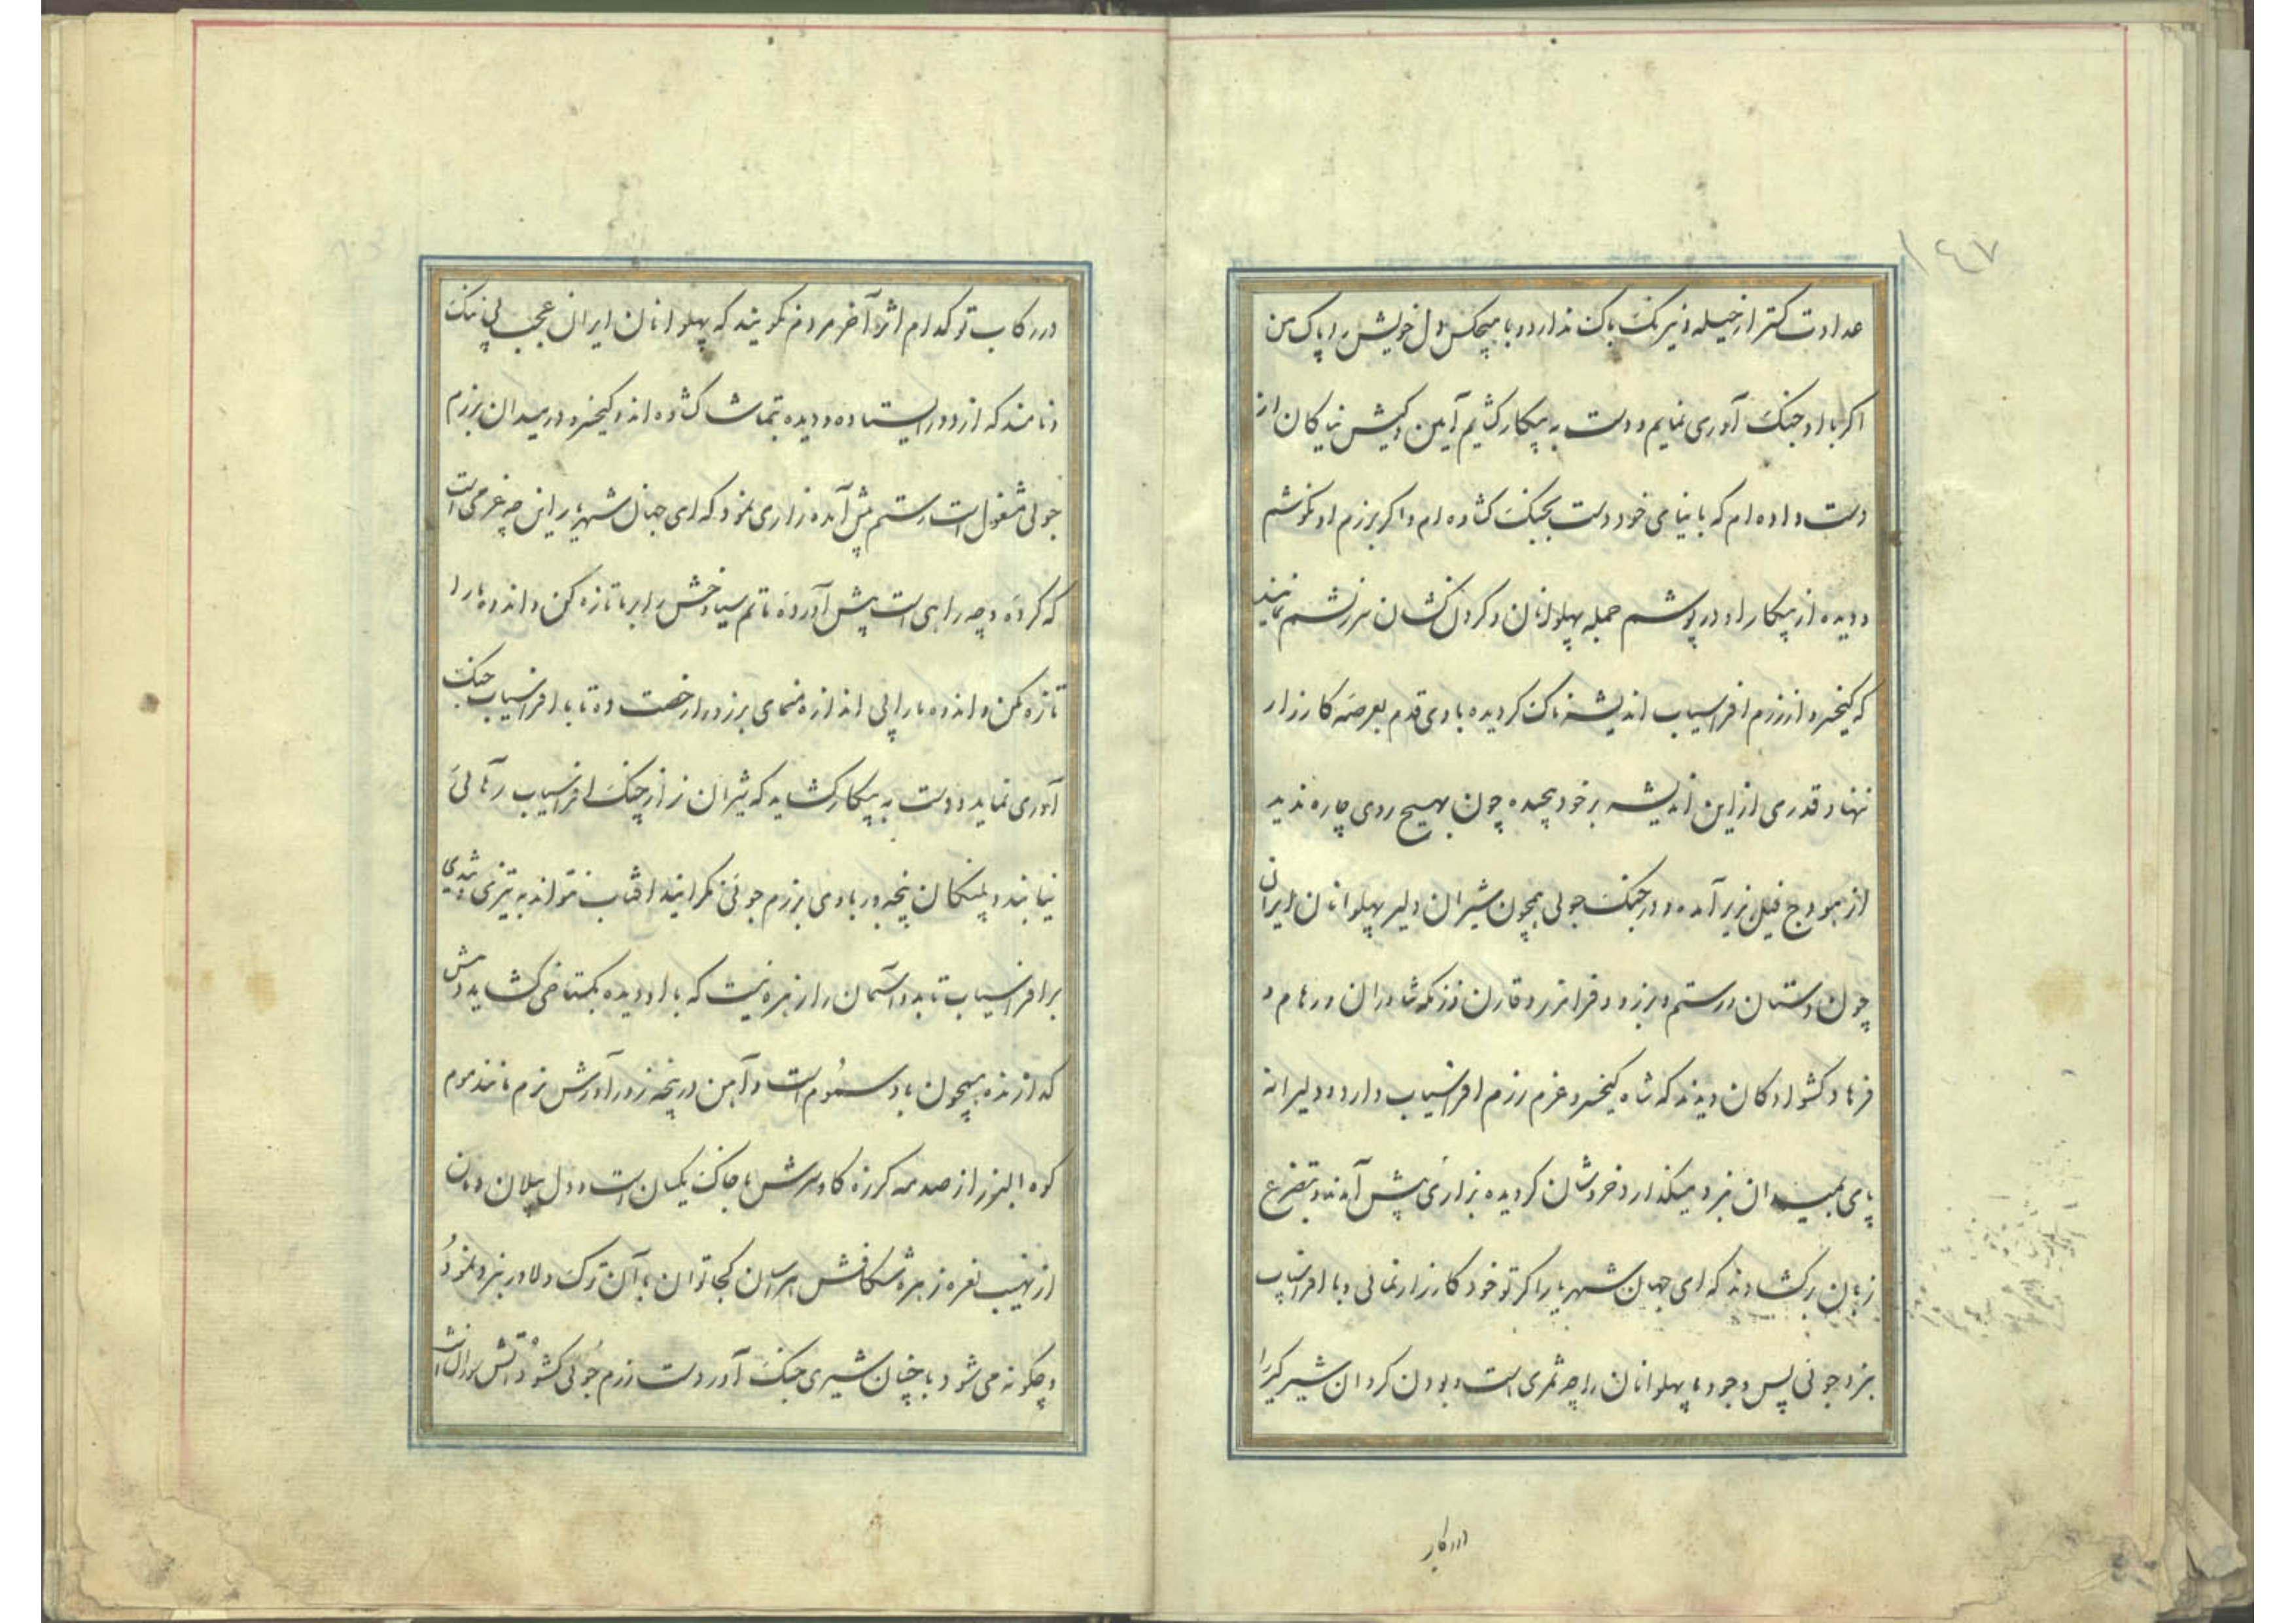 ۱۴۷
عداوت کتر از حیله و نیرنک باک ندارد و با هیچکس دل خویش را پاک من
اکر با او جنک آوری نمایم و دست به پیکار کشایم آیین و کیش نیاکان از
دست داده ام که با نیای خود دست بجنک کشاده ام و اکر برزم او نکوشم
و دیده از پیکار او در پوشم جمله پهلوانان و کردن کشان سرزنشم نمایند
که کیخسرو از رزم افراسیاب اندیشه ناک کردیده با وی قدم بعرصه کارزار
ننهاد قدری از این اندیشه بر خود پیچیده چون بهیچ روی چاره ندید
از هودج فیل بزیر آمده و در جنک جوئی همچون شیران دلیر پهلوانان ایران
چون دستان و رستم و برزو و فرامرز و قارن رزمکه شاوران و رهام و
فرهاد کشوادکان دیدند که شاه کیخسرو عزم رزم افراسیاب دارد و دلیرانه
پای بمیدان نبرد میکذارد خروشان کردیده بزاری پیش آمدند و بتضرع
زبان برکشادند که ای جهان شهریار اکر تو خود کارزار نمائی و با افراسیاب
نبرد جوئی پس وجود ما پهلوانان را چه ثمری است و بودن کردان شیرکیر را
در رکاب
در رکاب تو کدام اثر آخر مردم نکویند که پهلوانان ایران عجب بی ننک
و نامند که از دور ایستاده و دیده بتماشا کشاده اند و کیخسرو در میدان برزم
جوئی مشغول است رستم پیش آمده زاری نمود که ای جهان شهریار این چه عزمی است
که کرده و چه راهی است پیش آورده ماتم سیاوخش را بر ما تازه مکن و اندوه ما را
تازه مکن و اندوه ما را بی اندازه منمای برزو را رخصت ده تا با افراسیاب جنک
آوری نماید و دست به پیکار کشاید که شیران نر از چنک افراسیاب رهائی
نیابند و پلنکان پنجه ور با وی برزم جوئی نکرایند افتاب نتواند به تیزی و تندی
بر افراسیاب تابد و آسمان را زهره نیست که با او دیده بکستاخی کشاید دمش
کدازنده همچون باد سموم است و آهن در پنجه زورآورش نرم مانند موم
کوه البرز از صدمه کرزه کاوسرش با خاک یکسان است و دل پیلان دمان
از نهیب نعره زهره شکافش هراسان کجا توان با آن ترک دلاور نبرد نمود
و چکونه می شود با چنان شیری جنک آور دست رزم جوئی کشود آتش سوزان است